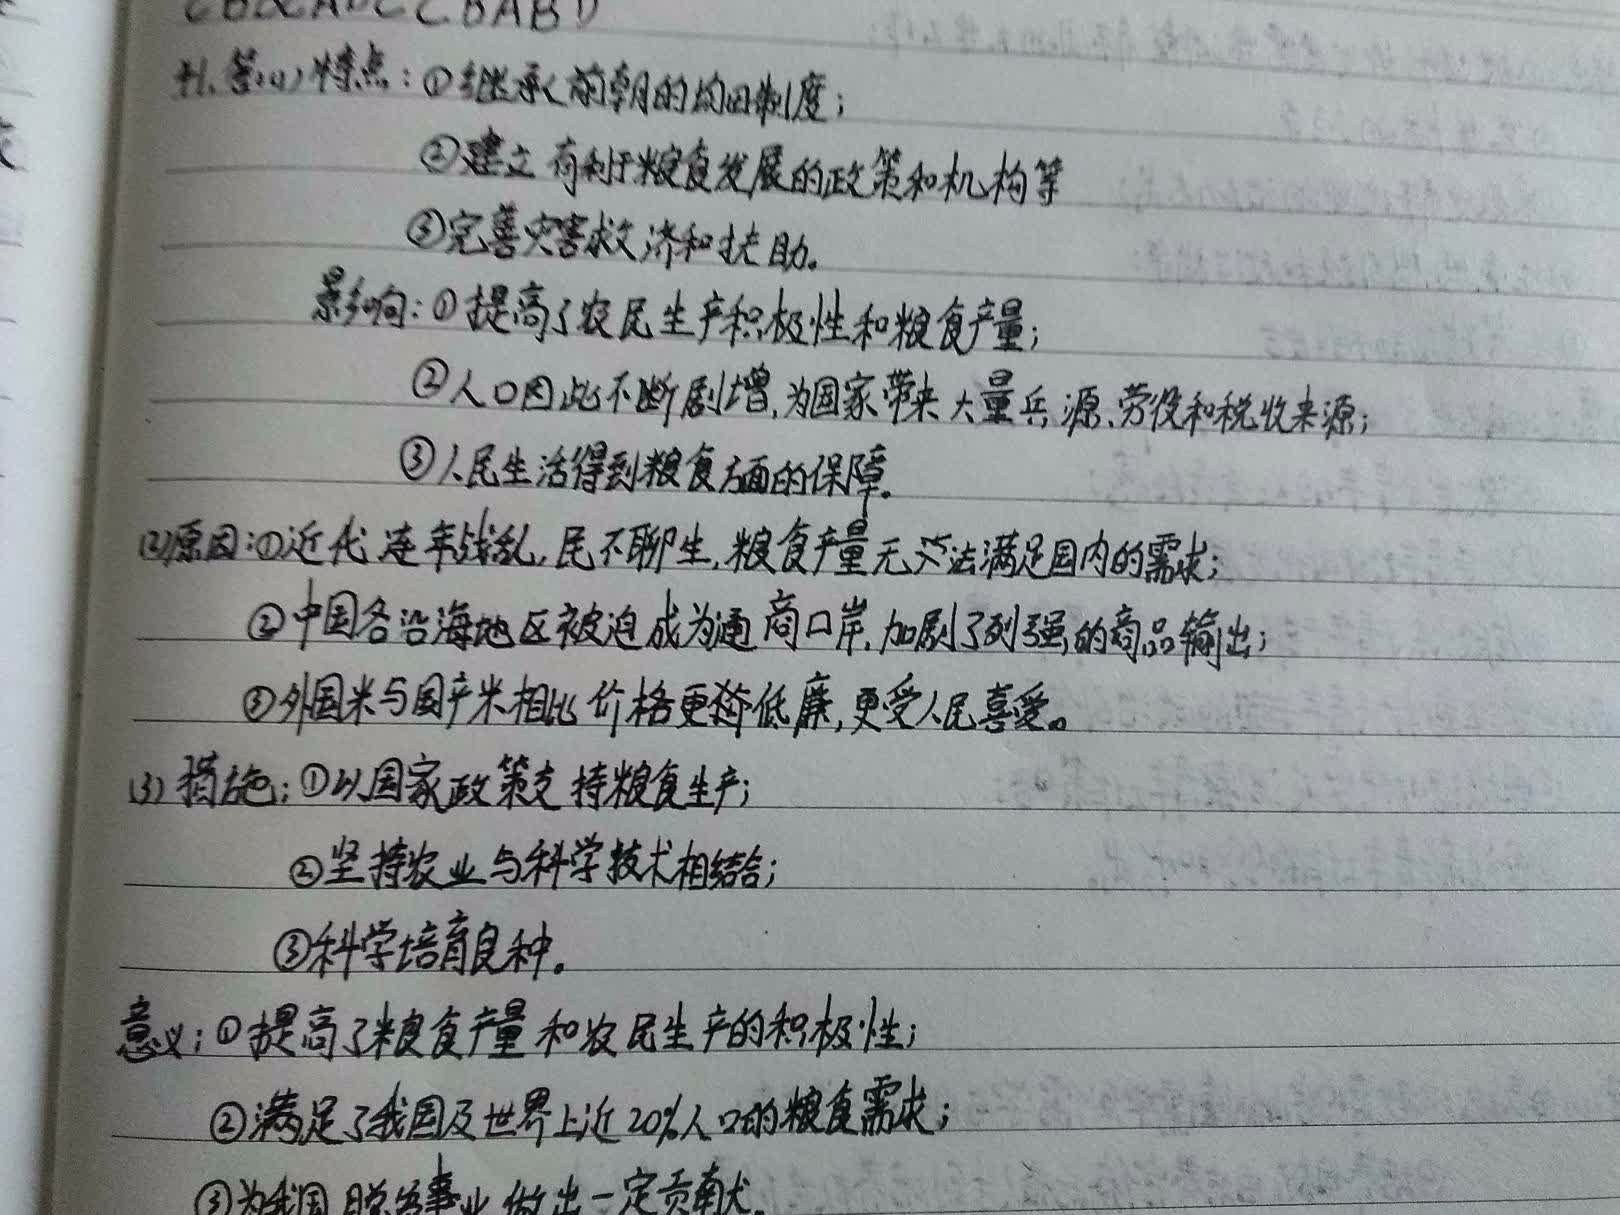 答(1)特点:①继承前朝的均田制度;
②建立有利于粮食发展的政策和机构等
③完善灾害救济和扶助。
影响:①提高了农民生产积极性和粮食产量;
②人口因此不断剧增,为国家带来大量兵源、劳役和税收来源;
③人民生活得到粮食方面的保障。
(2)原因:①近代连年战乱,民不聊生,粮食产量无法满足国内的需求;
②中国各沿海地区被迫成为通商口岸,加剧了列强的商品输出;
③外国米与国产米相比价格更低廉,更受人民喜爱。
(3)措施:①以国家政策支持粮食生产;
②坚持农业与科学技术相结合;
③科学培育良种。
意义:①提高了粮食产量和农民生产的积极性;
②满足了我国及世界上近20%人口的粮食需求;
③为我国脱贫事业做出一定贡献。